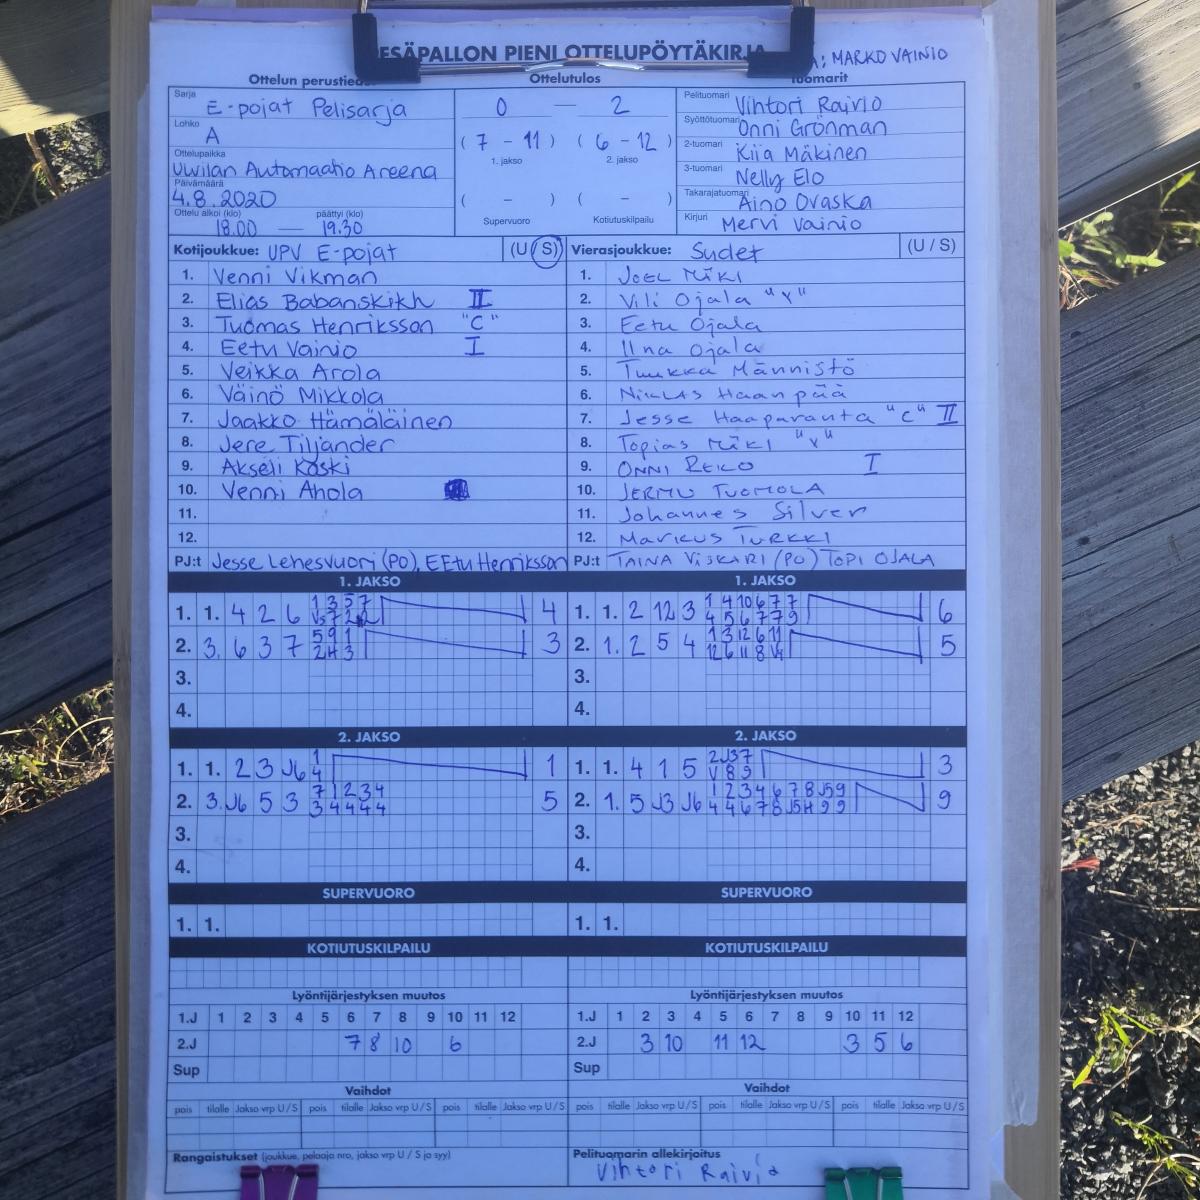 ESÄPALLON PIENI OTTELUPÖYTÄKIRJA : MARKO VAINIO
Ottelun perustied Ottelutulos Tuomarit
Sarja E-pojat Pelisarja
Lohko A
Ottelupaikka Uwilan Automaatio Areena
Päivämäärä 4.8.2020
Ottelu alkoi (klo) päättyi (klo)
18.00 — 19.30
0 — 2
(7 - 11) (6 - 12)
1. jakso 2. jakso
( - ) ( - )
Supervuoro Kotiutuskilpailu
Pelituomari Vihtori Raivio
Syöttötuomari Onni Grönman
2-tuomari Kiia Mäkinen
3-tuomari Nelly Elo
Takarajatuomari Aino Ovaska
Kirjuri Mervi Vainio
Kotijoukkue: UPV E-pojat (U/S)
1. Venni Vikman
2. Elias Babanskikh II
3. Tuomas Henriksson "C"
4. Eetu Vainio I
5. Veikka Arola
6. Väinö Mikkola
7. Jaakko Hämäläinen
8. Jere Tiljander
9. Akseli Koski
10. Venni Ahola
11.
12.
PJ:t Jesse Lehesvuori (PO), EEtu Henriksson
Vierasjoukkue: Sudet (U/S)
1. JOEL MÄKI
2. Vili Ojala "V"
3. Eetu Ojala
4. Ojala
5. Tuukka Männistö
6. NIKLAS Haanpää
7. Jesse Haaparanta "C" II
8. Topias MÄKI "V"
9. ONNI REKO I
10. JERMU TUOMOLA
11. Johannes Silver
12. Markus TURKKI
PJ:t TAINA VISKARI (PO) TOPI OJALA
1. JAKSO
1. 1. 4 2 6 4
2. 3. 6 3 7 3
3.
4.
1. JAKSO
1. 1. 2 12 3 6
2. 1. 2 5 4 5
3.
4.
2. JAKSO
1. 1. 2 3 J6 1
4
1
2. 3. J6 5 3 7 1 2 3 4
3 4 4 4 4
5
3.
4.
2. JAKSO
1. 1. 4 1 5 2 J3 7
V 8 9
3
2. 1. 5 J3 J6 1 2 3 4 6 7 8 J5 9
4 4 6 7 8 J5 H 9 9
9
3.
4.
SUPERVUORO SUPERVUORO
1. 1. 1. 1.
KOTIUTUSKILPAILU KOTIUTUSKILPAILU
Lyöntijärjestyksen muutos Lyöntijärjestyksen muutos
1.J 1 2 3 4 5 6 7 8 9 10 11 12 1.J 1 2 3 4 5 6 7 8 9 10 11 12
2.J 7 8 10 6 2.J 3 10 11 12 3 5 6
Sup Sup
Vaihdot Vaihdot
pois tilalle Jakso vrp U/S pois tilalle Jakso vrp U/S pois tilalle Jakso vrp U/S pois tilalle Jakso vrp U/S pois tilalle Jakso vrp U/S pois tilalle Jakso vrp U/S
Rangaistukset (joukkue, pelaaja nro, jakso vrp U / S ja syy) Pelituomarin allekirjoitus
Vihtori Raivio